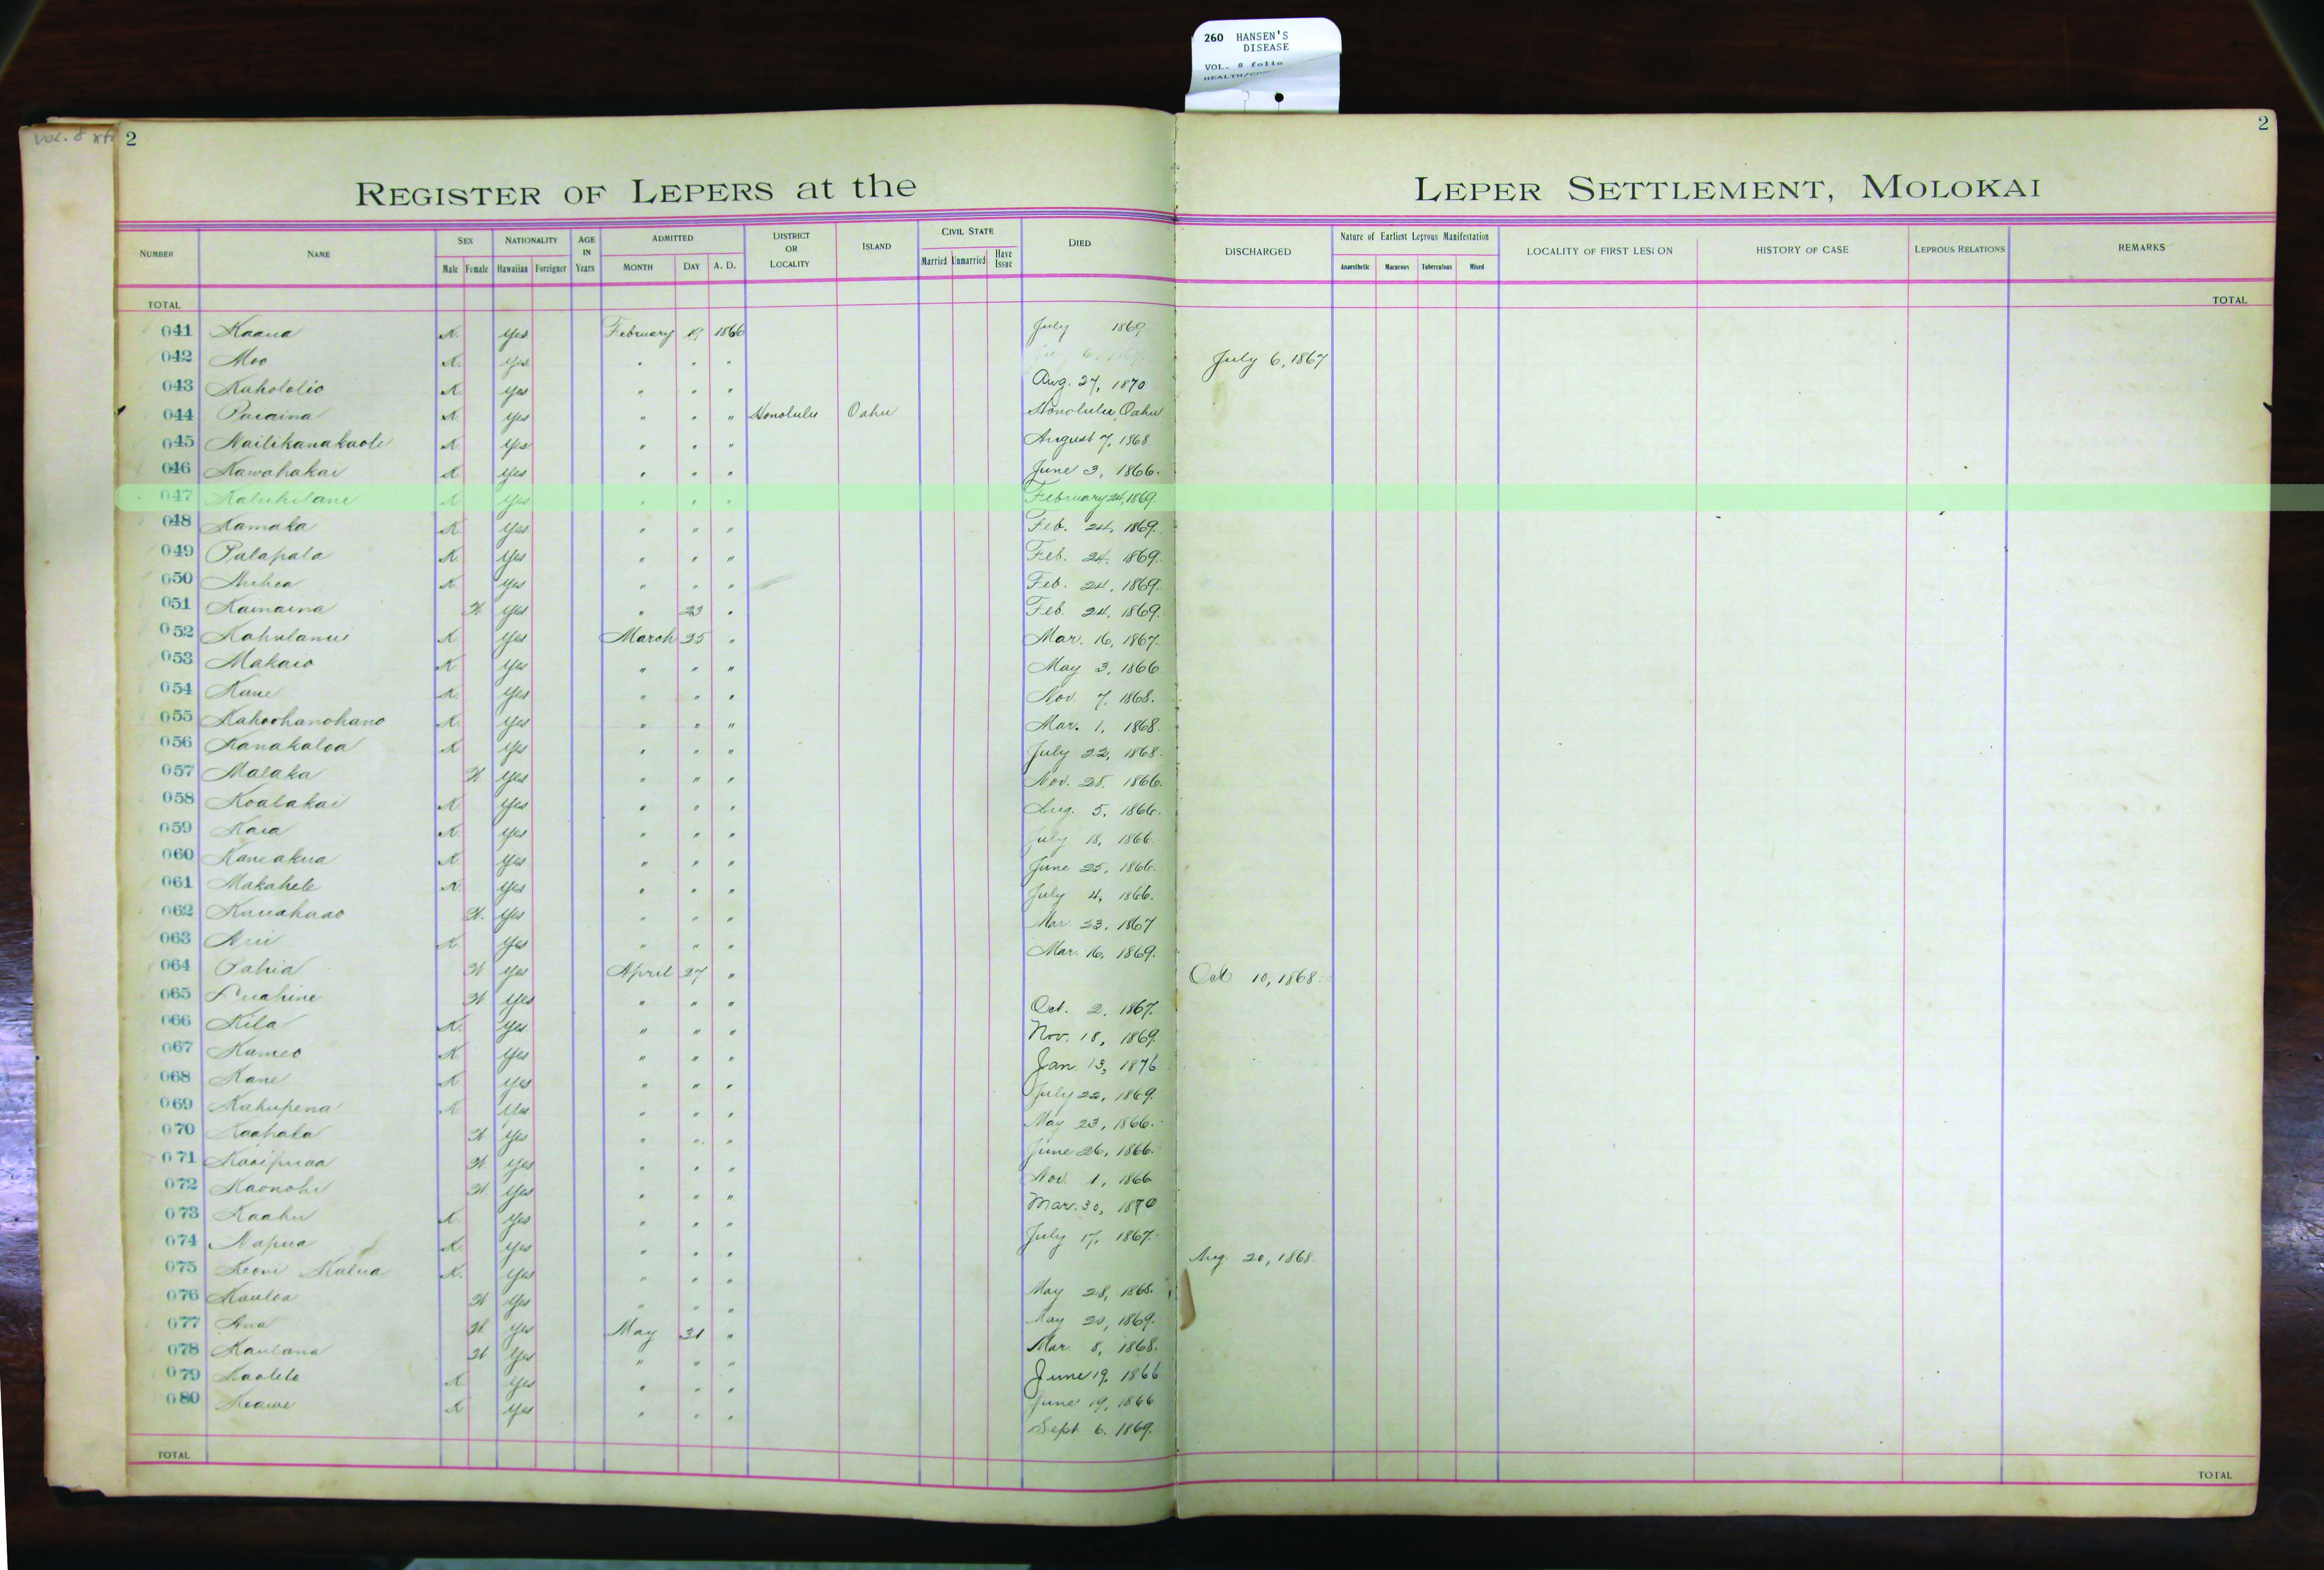 260 HANSEN'S
DISEASE
VOL. 8 folio
Vol. 8
2
2
REGISTER OF LEPERS at the LEPER SETTLEMENT, MOLOKAI
NUMBER NAME SEX Male Female NATIONALITY Hawaiian Foreigner AGE IN Years ADMITTED MONTH DAY A. D. DISTRICT OR LOCALITY ISLAND CIVIL STATE Married Unmarried Have Issue DIED DISCHARGED Nature of Earliest Leprous Manifestation Anaesthetic Macurous Tuberculous Mixed LOCALITY OF FIRST LESION HISTORY OF CASE LEPROUS RELATIONS REMARKS
TOTAL TOTAL
041 Kaaua K. Yes February 19 1866 July 1869
042 Moo K. Yes " " " July 6, 1867
043 Kahololio K Yes " " " Aug. 27, 1870
044 K Yes " " " Honolulu Oahu Honolulu, Oahu
045 K Yes " " " August 7, 1868
046 Kawahakai K Yes " " " June 3, 1866.
047 K Yes " " " February 24, 1869.
048 Kamaka K Yes " " " Feb. 24, 1869.
049 Palapala K. Yes " " " Feb. 24, 1869.
050 K. Yes " " " Feb. 24, 1869.
051 Kamaina W. Yes " 23 " Feb. 24, 1869.
052 K Yes March 25 " Mar. 16, 1867.
053 Makaio K Yes " " " May 3, 1866
054 Kane K. Yes " " " Nov. 7, 1868.
055 Kahoohanohano K. Yes " " " Mar. 1, 1868.
056 Kanakaloa K Yes " " " July 22, 1868.
057 Malaka W Yes " " " Nov. 28, 1866.
058 Koalakai K Yes " " " Aug. 5, 1866.
059 Kaia K. Yes " " " July 18, 1866.
060 Kaneakua K Yes " " " June 25, 1866.
061 Makahele K. Yes " " " July 4, 1866.
062 W. Yes " " " Mar. 23, 1867
063 K Yes " " " Mar. 16, 1869.
064 Pahia W Yes April 27 " Oct 10, 1868.
065 W Yes " " " Oct. 2, 1867.
066 Kila K. Yes " " " Nov. 18, 1869.
067 Kameo K Yes " " " Jan. 13, 1876
068 Kane K Yes " " " July 22, 1869.
069 Kahupena K Yes " " " May 23, 1866.
070 W Yes " " " June 26, 1866.
071 Kaaipuaa W. Yes " " " Nov. 1, 1866
072 Kaonohi W Yes " " " Mar. 30, 1870
073 Kaahu K. Yes " " " July 17, 1867.
074 Napua K. Yes " " " Aug. 20, 1868.
075 Keoni Kalua K. Yes " " " May 28, 1868.
076 Kauloa W Yes " " " May 20, 1869.
077 Ana W. Yes May 31 " Mar. 8, 1868.
078 Kaulana W Yes " " " June 19, 1866
079 Kaolelo K. Yes " " " June 19, 1866
080 Keawe K Yes " " " Sept. 6, 1869.
TOTAL TOTAL